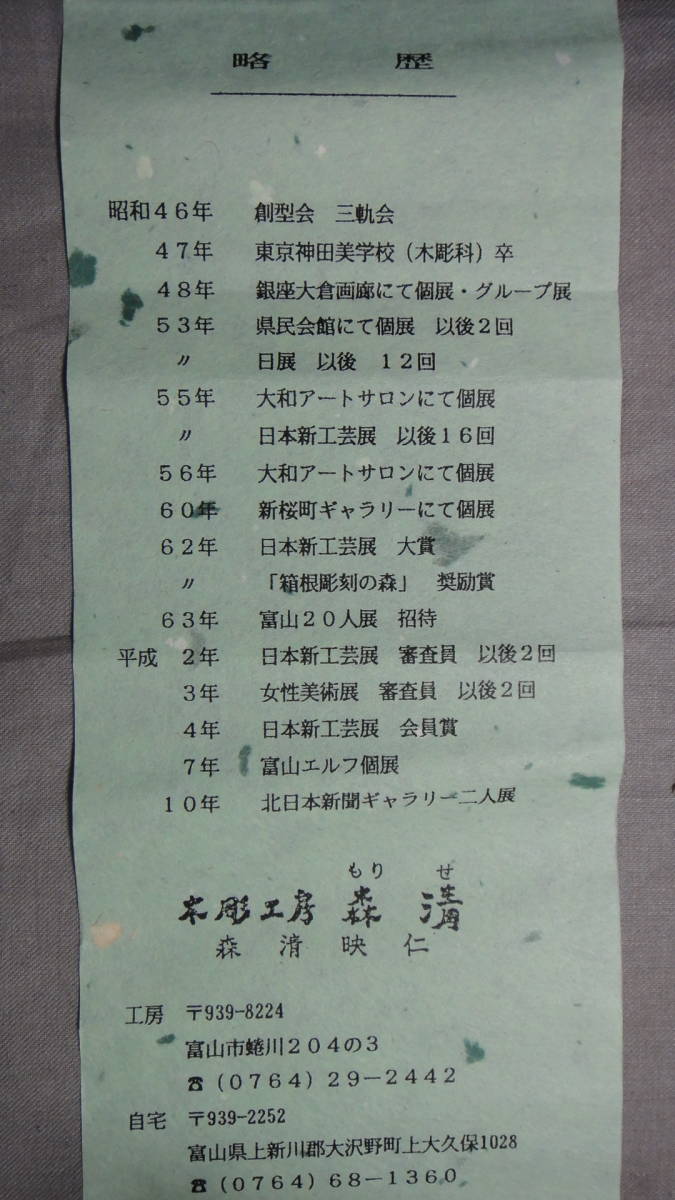 略　　　歴
昭和４６年　創型会　三軌会
４７年　東京神田美学校（木彫科）卒
４８年　銀座大倉画廊にて個展・グループ展
５３年　県民会館にて個展　以後２回
〃　日展　以後　１２回
５５年　大和アートサロンにて個展
〃　日本新工芸展　以後１６回
５６年　大和アートサロンにて個展
６０年　新桜町ギャラリーにて個展
６２年　日本新工芸展　大賞
〃　「箱根彫刻の森」　奨励賞
６３年　富山２０人展　招待
平成　２年　日本新工芸展　審査員　以後２回
３年　女性美術展　審査員　以後２回
４年　日本新工芸展　会員賞
７年　富山エルフ個展
１０年　北日本新聞ギャラリー二人展
もり　せ
木彫工房　森　清
森　清　映　仁
工房　〒939-8224
富山市蜷川２０４の３
☎（０７６４）２９－２４４２
自宅　〒939-2252
富山県上新川郡大沢野町上大久保1028
☎（０７６４）６８－１３６０